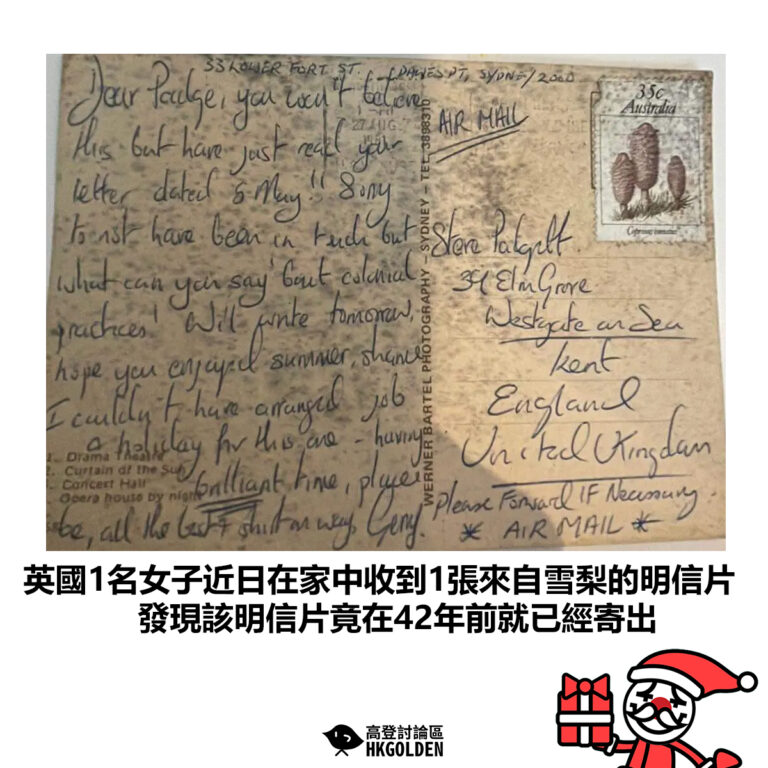 33 LOWER FORT ST. DAWES PT, SYDNEY 2000
Dear Padge, you won't believe
this but have just read your
letter dated 5 May!! Sorry
to not have been in touch but
what can you say 'bout colonial
practices! Will write tomorrow,
hope you enjoyed summer, shame
I couldn't have arranged job
& holiday for this one - having
brilliant time, place
be, all the best & shirt on way, Gerry.
1. Drama Theatre
2. Curtain of the Sun
3. Concert Hall
Opera house by night
WERNER BARTEL PHOTOGRAPHY – SYDNEY – TEL. 3898310
AIR MAIL
35c
Australia
Coprinus comatus
Steve Padgett
34 Elm Grove
Westgate on Sea
Kent
England
United Kingdom
Please Forward IF Necessary.
* AIR MAIL *
英國1名女子近日在家中收到1張來自雪梨的明信片
發現該明信片竟在42年前就已經寄出
高登討論區
HKGOLDEN